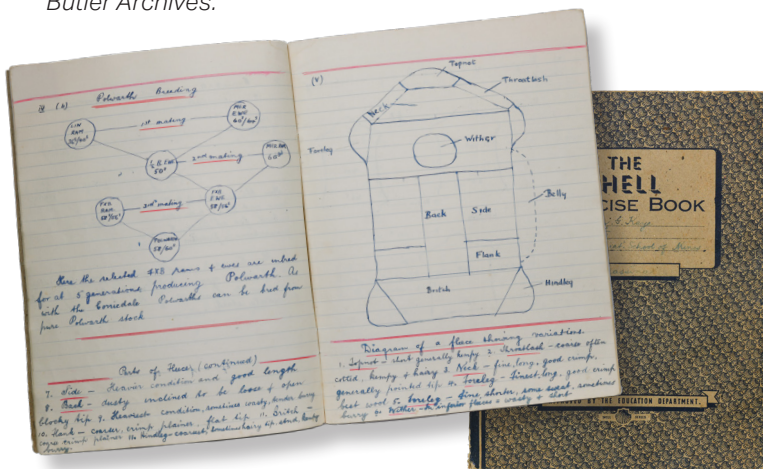 Butler Archives.
(b) Polwarth Breeding
LIN RAM
1st mating
MER EWE
2nd mating
MER RAM
FXB RAM
3rd mating
FXB EWE
POLWARTH
Here the selected 4XB rams + ewes are inbred
for at 5 generations producing Polwarth. As
with the Corriedale Polwarths can be bred from
pure Polwarth stock
Parts of Fleece (continued)
7. Side – Heavier condition and good length
8. Back – dusty inclined to be loose + open
blocky tip 9. Heaviest condition, sometimes wasty, tender burry
10. Flank – coarser, crimp plainer – flat tip 11. Britch –
crimp plainer 12. Hindleg – coarsest, sometimes hairy tip
burry.
(V)
Topnot
Throatlash
Neck
Foreleg
Wither
Belly
Back
Side
Flank
Britch
Hindleg
Diagram of a fleece showing variations.
1. Topnot – short generally kempy 2. Throatlash – coarse often
cotted, kempy + hairy 3. Neck – fine, long, good crimp,
generally pointed tip. 4. Foreleg – finest, long, good crimp
best wool 5. Foreleg – fine, shorter, some sweat, sometimes
burry 6. Wither – In inferior fleeces a wasty + short
THE
HELL
CISE BOOK
School of
BY THE EDUCATION DEPARTMENT.